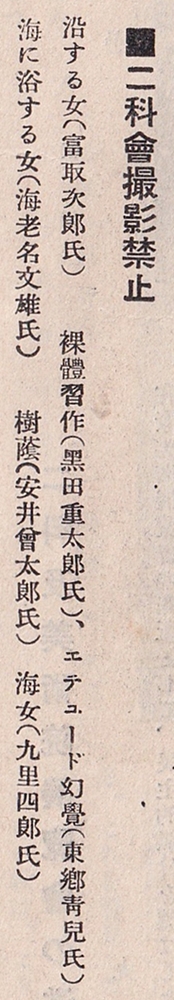 ■二科會撮影禁止
沿する女(富取次郎氏)　裸體習作(黑田重太郎氏)、エチュード幻覺(東鄕靑兒氏)
海に浴する女(海老名文雄氏)　樹蔭(安井曾太郎氏)　海女(九里四郎氏)